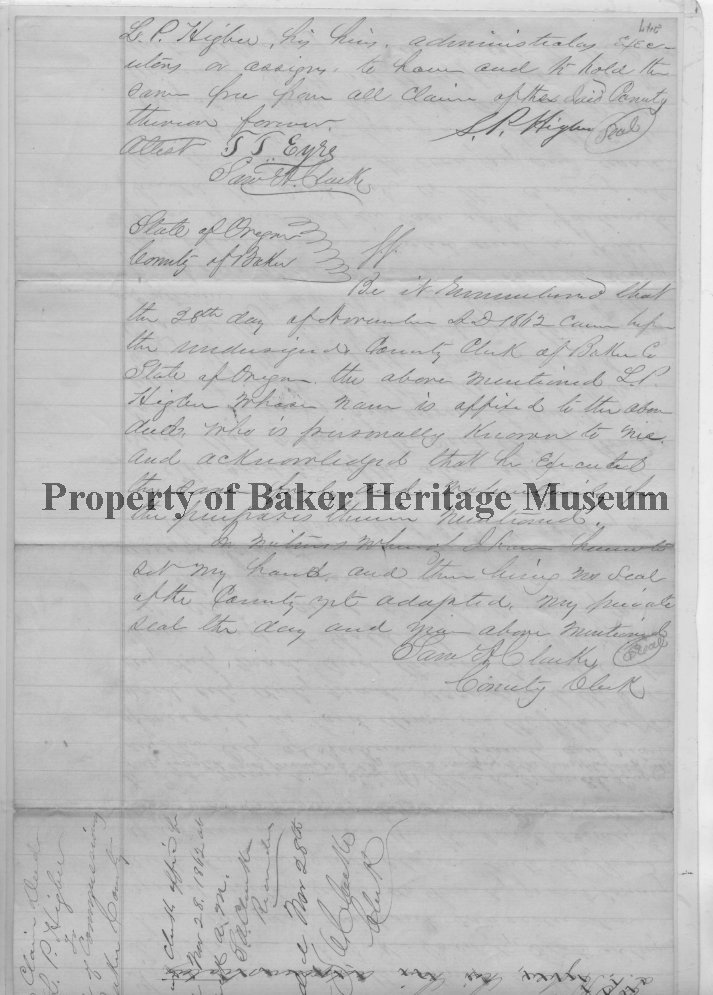 L. P. Higbee, his heirs, administrators exec-
utors or assigns, to have and to hold the
same free from all claim of the said County
thereon forever.
L. P. Higbee Seal
Attest T T Eyre
Saml A. Clarke
State of Oregon
County of Baker ss.
Be it Remembered that
the 28th day of November A D 1862 Came before
the undersigned County Clerk of Baker Co
State of Oregon the above mentioned L. P.
Higbee whose name is affixed to the above
deed, who is personally known to me
and acknowledged that he Executed
the same
Property of Baker Heritage Museum
the purposes therein mentioned.
In witness whereof I have hereunto
set my hand, and there being no Seal
of the County yet adopted, my private
seal the day and year above mentioned
Saml A Clarke Seal
County Clerk
Claim Deed
L. P. Higbee
To
Commissioners
Baker County
Clerks office
Nov 28. 1862 at
A. M.
S A Clarke
Recorder
Nov 28th
S A Clarke
Clerk